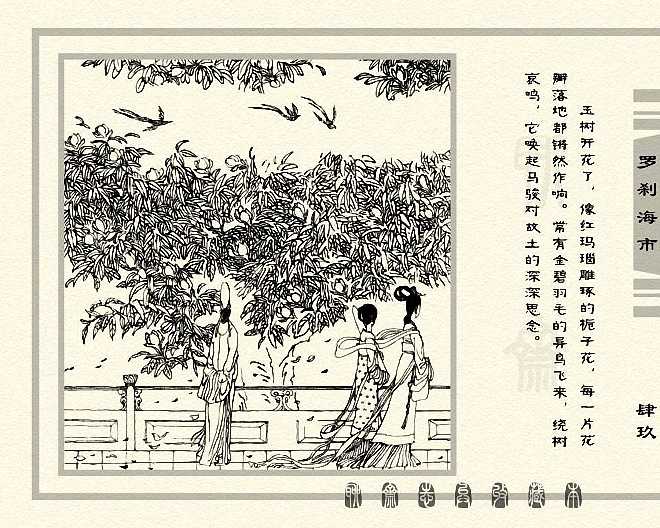 玉树开花了，像红玛瑙雕琢的栀子花，每一片花
瓣落地都锵然作响。常有金碧羽毛的异鸟飞来，绕树
哀鸣，它唤起马骏对故土的深深思念。
罗刹海市
肆玖